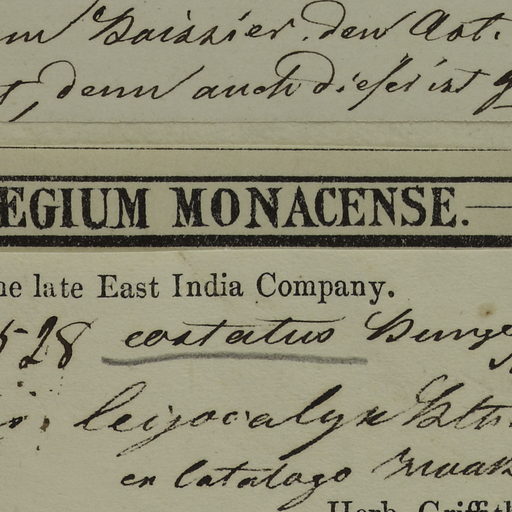 m Boissier den Art.
t, denn auch dieser ist g
EGIUM MONACENSE.
he late East India Company.
528 costatus Bunge
leijocalyx
en Catalogo
Herb. Griffith